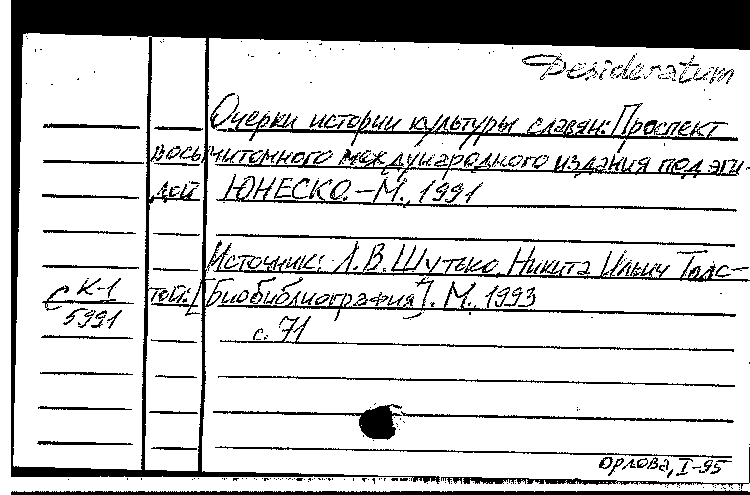 Desideratum
Очерки истории культуры славян: Проспект
восьмитомного международного издания под эги-
дой ЮНЕСКО. – М., 1991
Источник: Л.В. Шутько, Никита Ильич Толс-
той: [Биобиблиография]. М. 1993
с. 71
с К-1
5991
Орлова, I-95